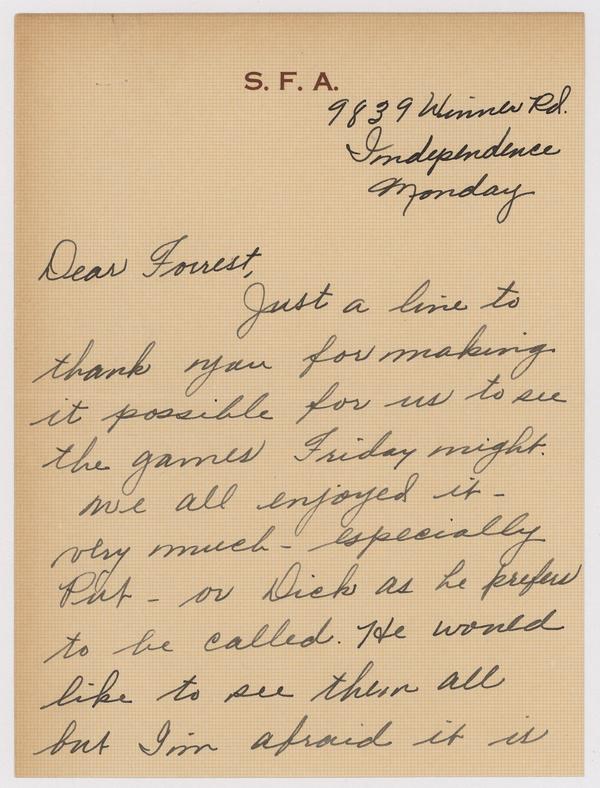 S. F. A.
9839 Winner Rd.
Independence
Monday
Dear Forrest,
Just a line to
thank you for making
it possible for us to see
the games Friday night.
We all enjoyed it -
very much - especially
Put - or Dick as he prefers
to be called. He would
like to see them all
but I'm afraid it is